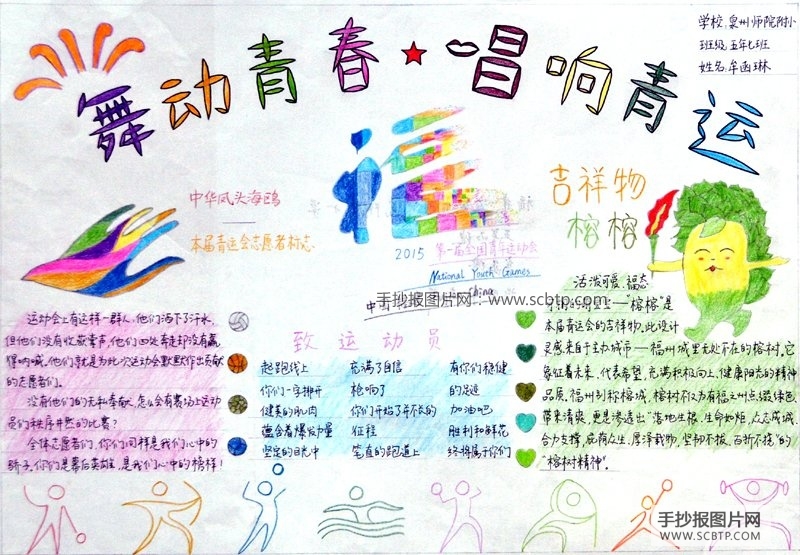 学校:泉州师院附小
班级:五年七班
姓名:牟函琳
舞动青春★唱响青运
中华凤头海鸥
本届青运会志愿者标志
福
2015 第一届全国青年运动会
National Youth Games
China
手抄报图片网:www.scbtp.com
吉祥物
榕榕
活泼可爱、福态
"榕榕"是
本届青运会的吉祥物,此设计
灵感来自于主办城市——福州城里无处不在的榕树。它
象征着未来,代表希望,充满积极向上,健康阳光的精神
品质。福州别称榕城,榕树不仅为福州点缀绿色,
带来清爽,更是渗透出"落地生根、生命如炬、众志成城、
合力支撑、庇荫众生、厚泽载物、坚韧不拔、百折不挠"的
"榕树精神"。
运动会上有这样一群人,他们洒下了汗水,
但他们没有收获掌声,他们四处奔走却没有赢
得呐喊。他们就是为此次运动会默默作出贡献
的志愿者们。
没有他们的无私奉献,怎么会有赛场上运动
员们秩序井然的比赛?
全体志愿者们,你们同样是我们心中的
骄子。你们是幕后英雄,是我们心中的榜样!
致运动员
起跑线上 充满了自信 有你们稳健
你们一字排开 枪响了 的足迹
健美的肌肉 你们开始了并不长的 加油吧
蕴含着爆发力量 征程 胜利和鲜花
坚定的目光中 笔直的跑道上 终将属于你们
手抄报图片网
WWW.SCBTP.COM